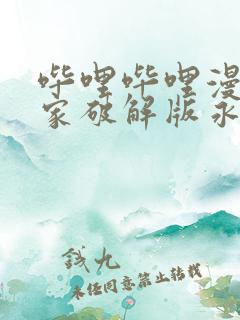 哔哩哔哩漫
家破解版永
钱九
未经同意禁止转载